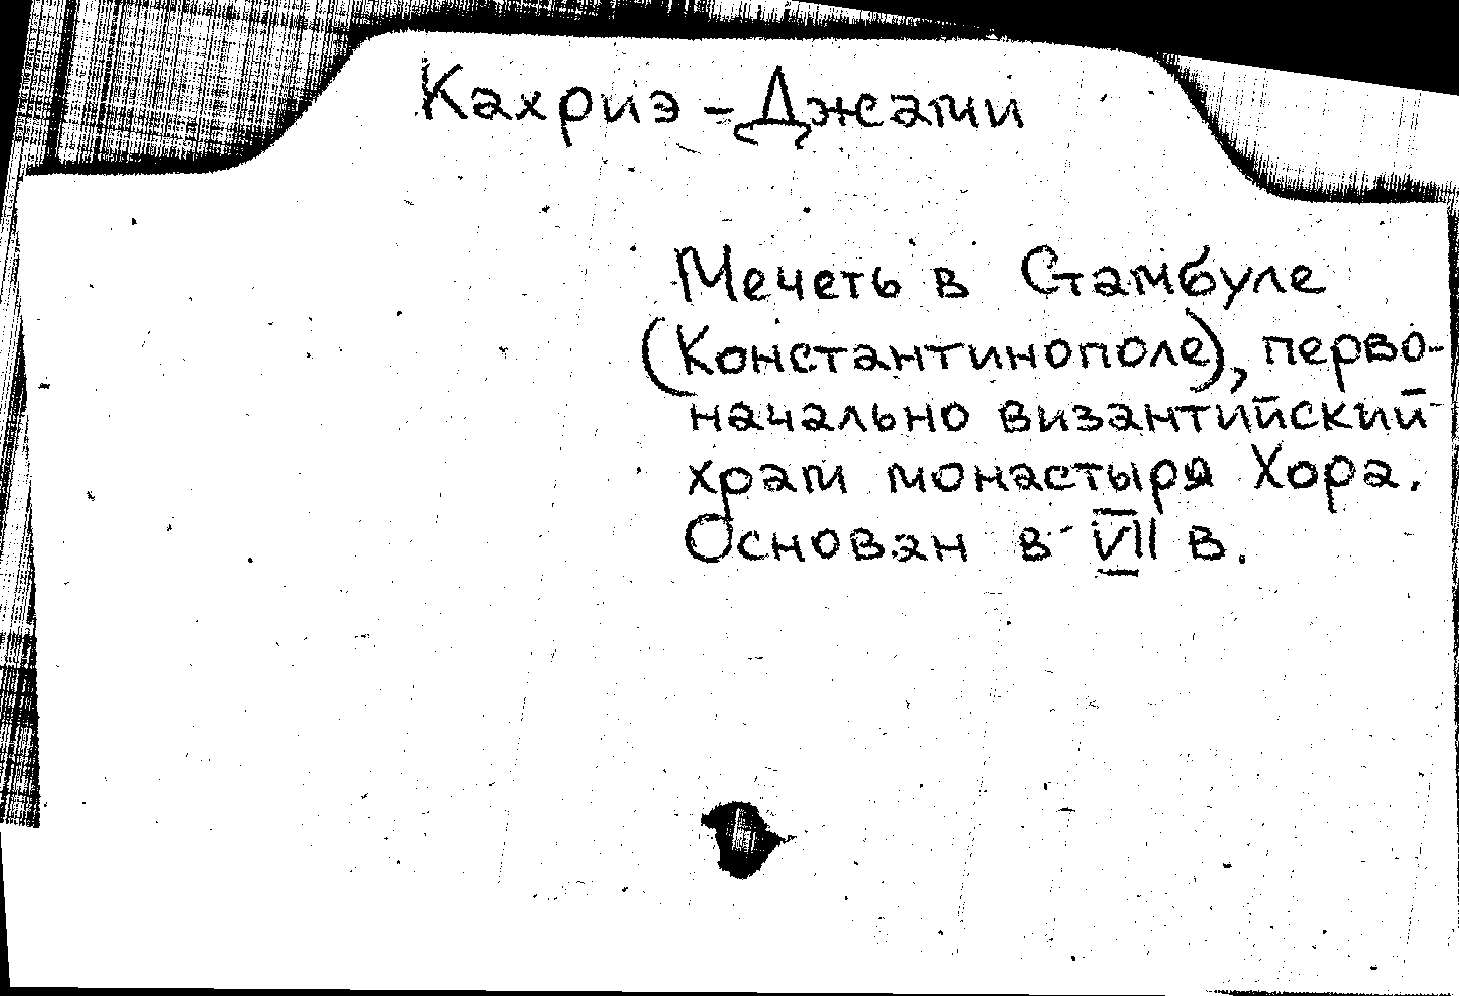 Кахриэ-Джами
Мечеть в Стамбуле
(Константинополе), перво-
начально византийский
храм монастыря Хора.
Основан в VII в.